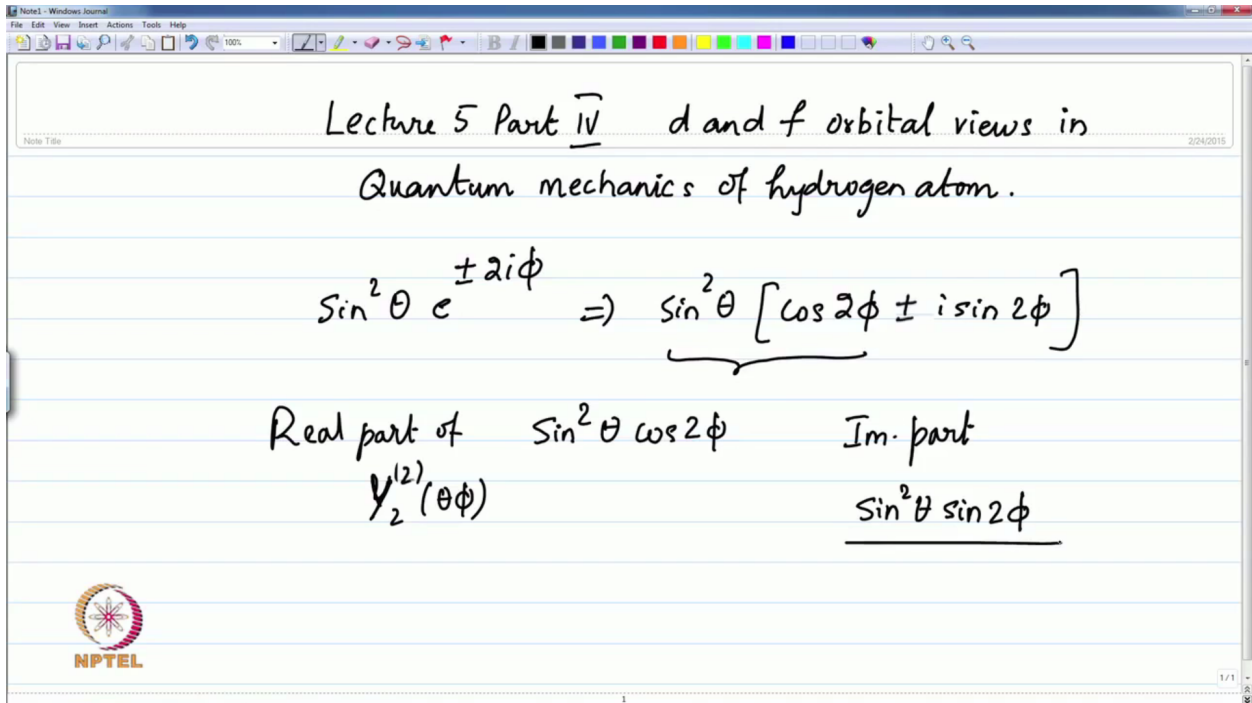 Note1 - Windows Journal
File Edit View Insert Actions Tools Help
100%
B I
Lecture 5 Part IV d and f orbital views in
Note Title
2/24/2015
Quantum mechanics of hydrogen atom.
sin² θ e^{± 2iϕ} => sin² θ [cos 2ϕ ± i sin 2ϕ]
Real part of sin² θ cos 2ϕ Im. part
Y₂⁽²⁾ (θϕ)
sin² θ sin 2ϕ
NPTEL
1/1
1